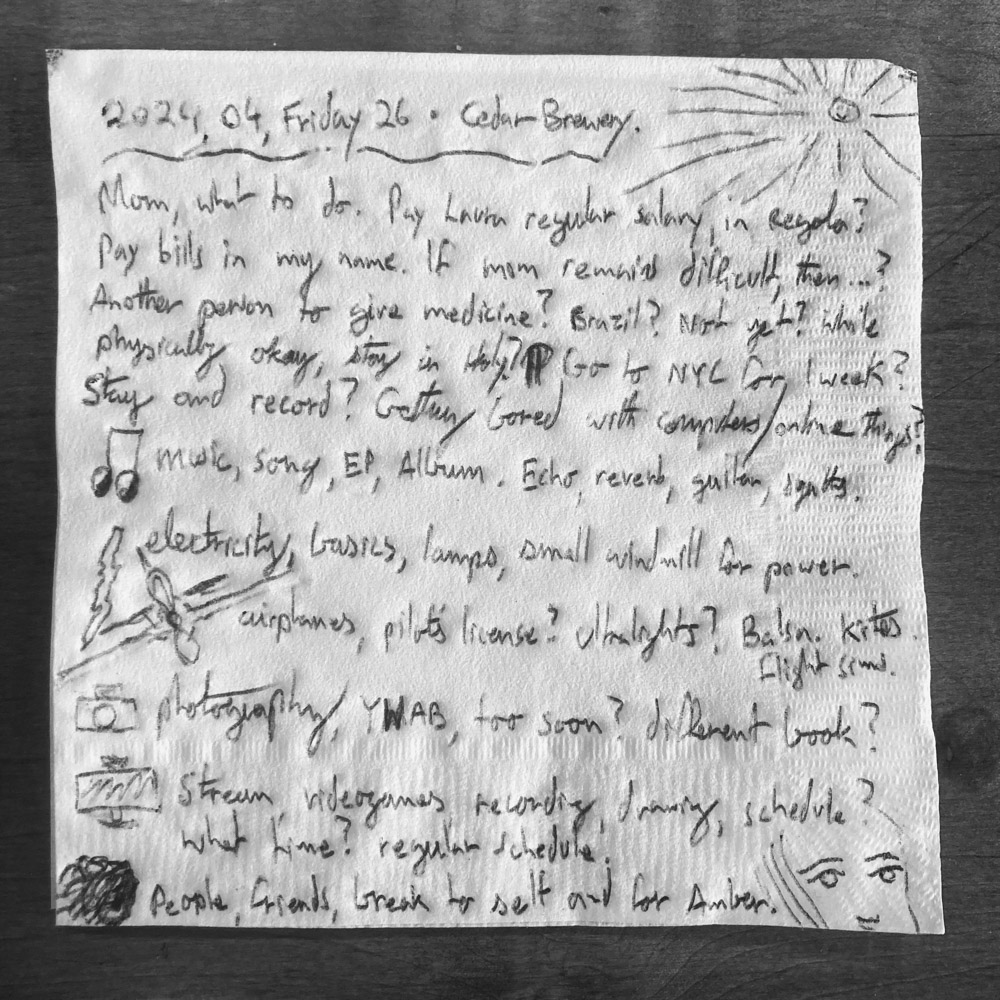 2024, 04, Friday 26 • Cedar Brewery.
Mom, what to do. Pay Laura regular salary, in Regola?
Pay bills in my name. If mom remains difficult, then...?
Another person to give medicine? Brazil? Not yet? While
physically okay, stay in Italy? Go to NYC for 1 week?
Stay and record? Getting bored with computers/online things?
music, song, EP, Album. Echo, reverb, guitar,
electricity, basics, lamps, small windmill for power.
airplanes, pilot's license? Ultralights? Balsa. Kites.
flight sims.
photography, YWAB, too soon? different book?
Stream, videogames, recording, drawing, schedule?
what time? regular schedule.
People, friends, break to self and for Amber.